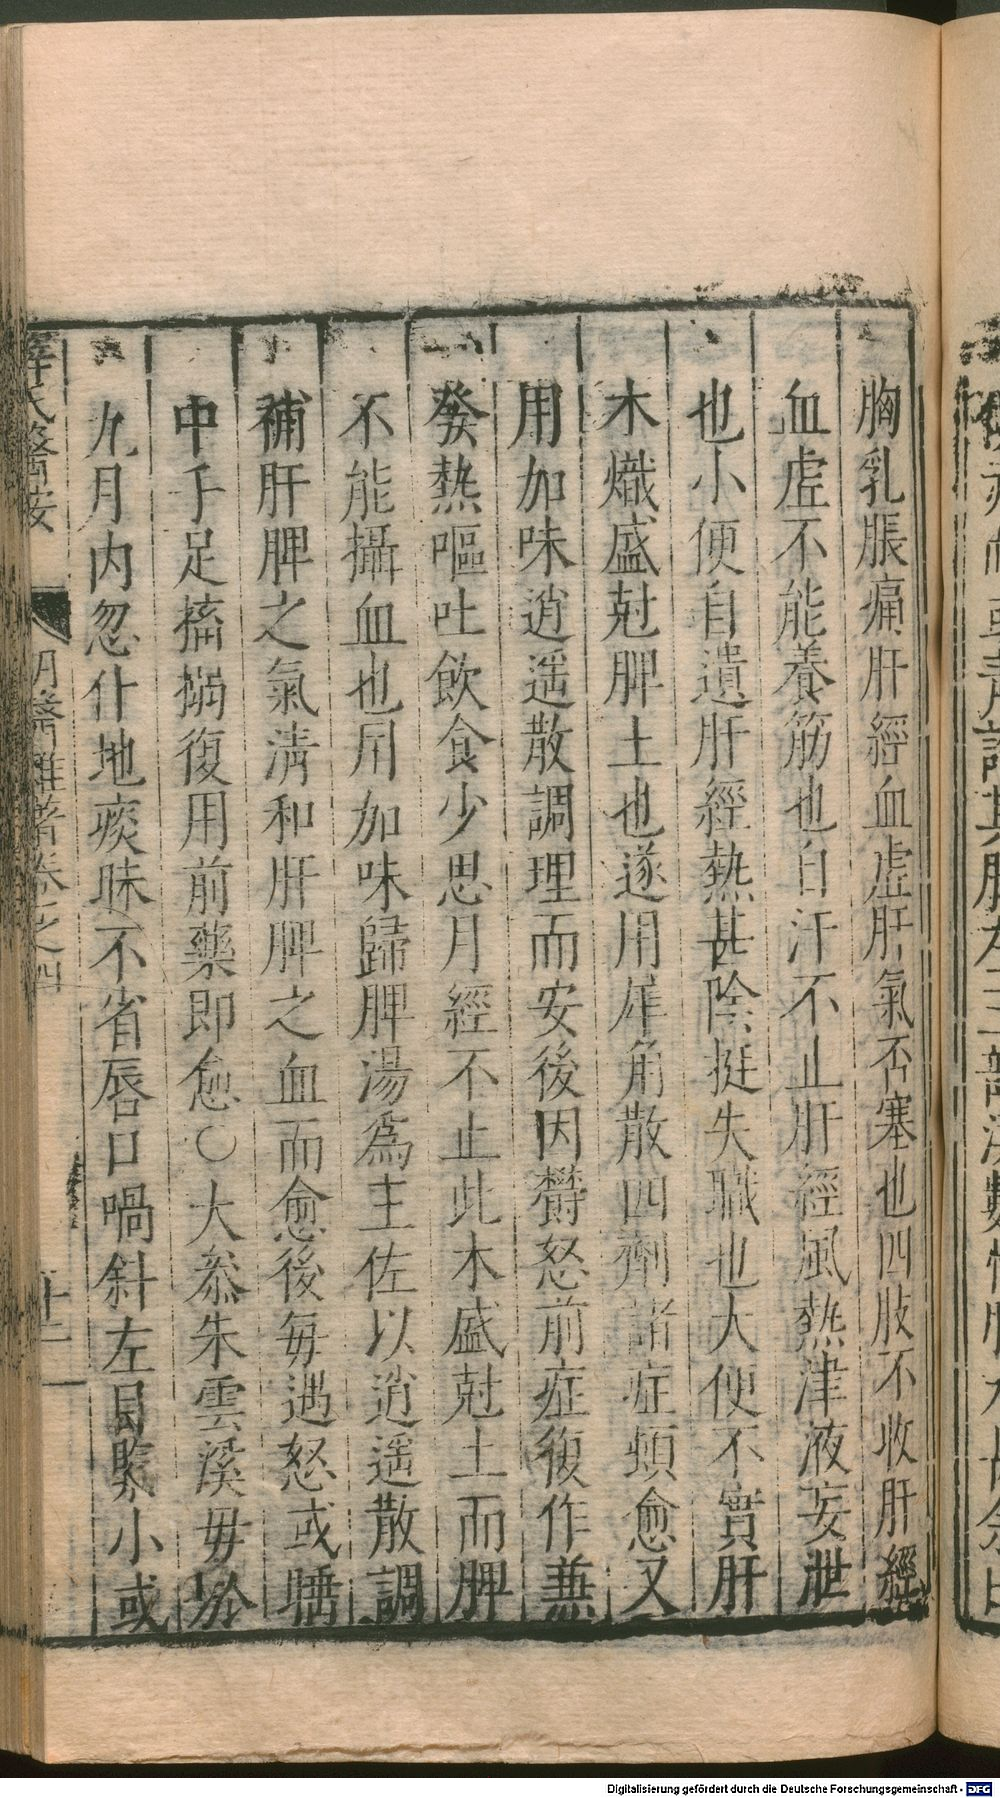 胸乳脹痛肝經血虛肝氣否塞也四肢不收肝經
血虛不能養筋也自汗不止肝經風熱津液妄泄
也小便自遺肝經熱甚陰挺失職也大便不實肝
木熾盛尅脾土也遂用犀角散四劑諸症頓愈又
用加味逍遥散調理而安後因欝怒前症復作兼
發熱嘔吐飲食少思月經不止此木盛尅土而脾
不能攝血也用加味歸脾湯爲主佐以逍遥散調
補肝脾之氣淸和肝脾之血而愈後每遇怒或睡
中手足搐搦復用前藥即愈〇大叅朱雲溪母於
九月内忽仆地痰昧不省唇口喎斜左目緊小或
薛氏醫按 明醫雜著卷之四 十二
Digitalisierung gefördert durch die Deutsche Forschungsgemeinschaft - DFG